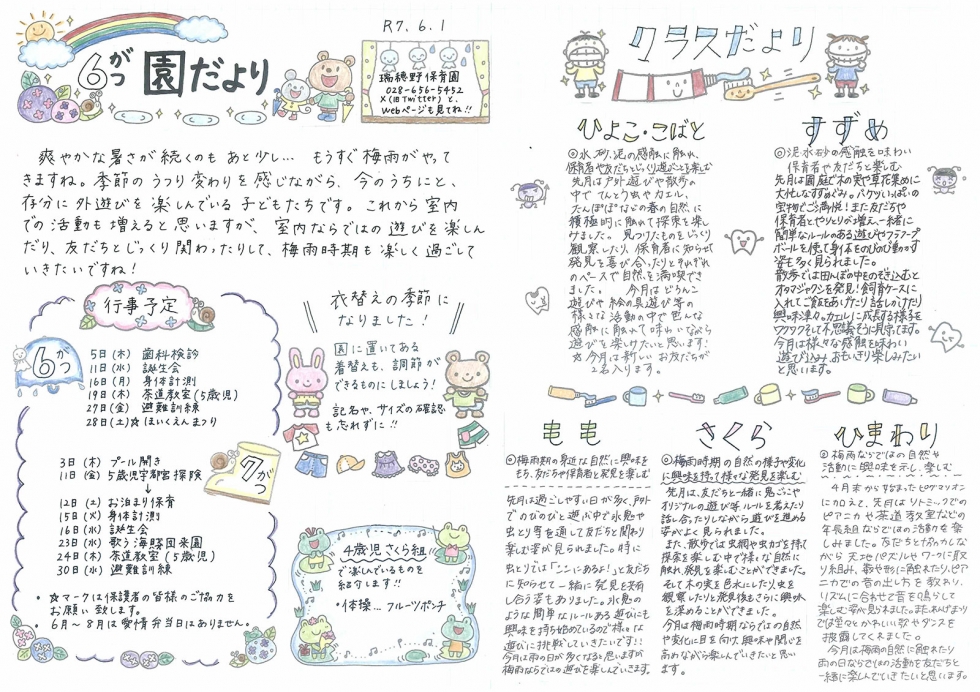 R7.6.1
6がつ 園だより
瑞穂野保育園
028-656-5452
X(旧Twitter)と、
Webページも見てね!!
爽やかな暑さが続くのもあと少し… もうすぐ梅雨がやって
きますね。季節のうつり変わりを感じながら、今のうちにと、
存分に外遊びを楽しんでいる子どもたちです。これから室内
での活動も増えると思いますが、室内ならではの遊びを楽しん
だり、友だちとじっくり関わったりして、梅雨時期も楽しく過ごして
いきたいですね!
行事予定
6がつ
5日(木) 歯科検診
11日(水) 誕生会
16日(月) 身体計測
19日(木) 茶道教室(5歳児)
27日(金) 避難訓練
28日(土)☆ほいくえんまつり
7がつ
3日(木) プール開き
11日(金) 5歳児宇都宮探険
↓
12日(土) お泊まり保育
15日(火) 身体計測
16日(水) 誕生会
23日(水) 歌う海賊団来園
24日(木) 茶道教室(5歳児)
30日(水) 避難訓練
・☆マークは保護者の皆様のご協力を
お願い致します。
・6月~8月は愛情弁当日はありません。
衣替えの季節に
なりました!
園に置いてある
着替えも、調節が
できるものにしましょう!
記名や、サイズの確認
も忘れずに!!
4歳児さくら組
で楽しんでいるものを
紹介します!!
・体操… フルーツポンチ
クラスだより
ひよこ・こばと
◎水、砂、泥の感触に触れ、
保育者や友だちとじっくり遊ぶことを楽しむ
先月は戸外遊びや散歩の
中でてんとう虫やカエル、
たんぽぽなどの春の自然に
積極的に触れて探索を楽し
みました。見つけたものをじっくり
観察したり、保育者に知らせて
発見を喜び合ったりとそれぞれ
のペースで自然を満喫でき
ました。 今月はどろんこ
遊びや絵の具遊び等の
様々な活動の中で色んな
感触に触れて味わいながら
遊びを楽しめたいと思います!
☆今月は新しいお友だちが
2名入ります。
すずめ
◎泥水砂の感触を味わい
保育者や友だちと楽しむ
先月は園庭で木の実や草花集めに
大忙しなすずめぐみ。バケツいっぱいの
宝物にご満悦!また友だちや
保育者とやりとりが増え一緒に
簡単なルールのある遊びやフラフープ
ボールを使って身体をのびのび動かす
姿も多く見られました。
散歩では田んぼの中をのぞき込むと
オタマジャクシを発見!飼育ケースに
入れてご飯をあげたり話しかけたり
興味津々。カエルに成長する様子を
ワクワクそして不思議そうに見守ってます。
今月は様々な感触を味わい
遊び込み、おもいきり楽しみたい
と思います。
もも
◎梅雨期の身近な自然に興味を
もち、友だちや保育者と発見を楽しむ
先月は過ごしやすい日が多く、戸外
でのびのびと遊ぶ中で氷鬼や
虫とり等を通して友だちと関わり
楽しむ姿が見られました。時に
虫とりでは「ここにいるよ!」と友だち
に知らせて一緒に発見を共有
し合う姿もありました。氷鬼の
ような簡単なルールある遊びにも
興味を持ち始めているので様々な
遊びに挑戦していきたいです!!
今月は雨の日が多くなると思いますが
梅雨ならではの遊びを楽しんでいきます。
さくら
◎梅雨時期の自然の様子や変化
に興味を持って様々な発見を楽しむ
先月は、友だちと一緒に鬼ごこや
オリジナルの遊び等ルールを考えたり
話し合ったりしながら遊びを進める
姿がよく見られました。
また、散歩では虫網や虫カゴを持って
探索を楽しむ中で様々な自然に
触れ、発見を楽しむことができました。
そして木の実を色水にしたり虫を
観察したりと発見後もさらに興味
を深めることができました。
今月は梅雨時期ならではの自然
や変化に目を向け、興味や関心を
高めながら楽しんでいきたいと思い
ます。
ひまわり
◎梅雨ならではの自然や
活動に興味を示し、楽しむ
4月末から始まったピグマリオン
に加えて、先月はリトミックでの
ピアニカや茶道教室などの
年長組ならではの活動を楽
しみました。友だちと協力しな
がら天地パズルやワークに取
り組み、数や形に触れたり、ピア
ニカでの音の出し方を教わり、
リズムに合わせて音を鳴らして
楽しむ姿が見られました。また、あげまり
では堂々とかわいい歌やダンスを
披露してくれました。
今月は梅雨の自然に触れたり
雨の日ならではの活動を友だちと
一緒に楽しんでいきたいと思います。